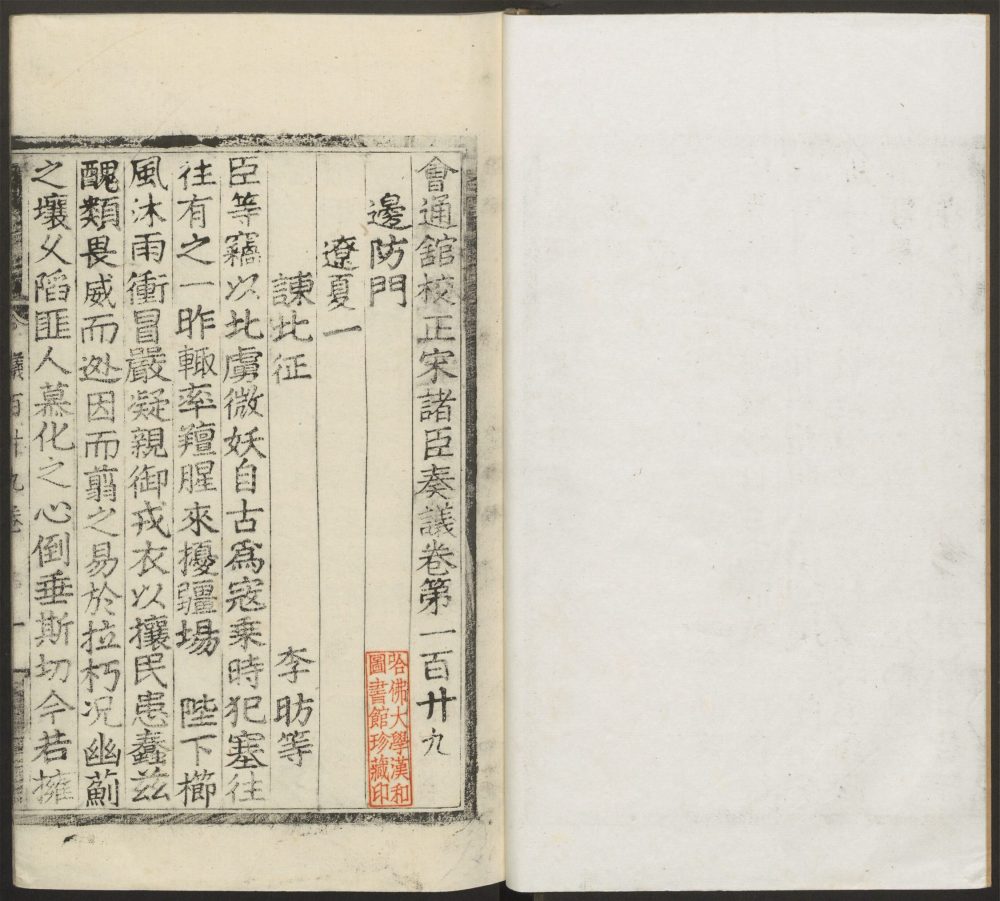 會通館校正宋諸臣奏議卷第一百廿九
邊防門
遼夏一
諫北征
李昉等
臣等竊以北虜微妖自古爲寇乘時犯塞往
往有之一昨輙率羶腥來擾疆場 陛下櫛
風沐雨衝冒嚴凝親御戎衣以攘民患蠢兹
醜類畏威而迯因而翦之易於拉朽况幽薊
之壤久陷匪人慕化之心倒垂斯切今若擁
哈佛大學漢和
圖書館珍藏印
議百廿九卷
一